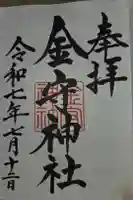 奉拝
金守神社
令和七年七月十二日